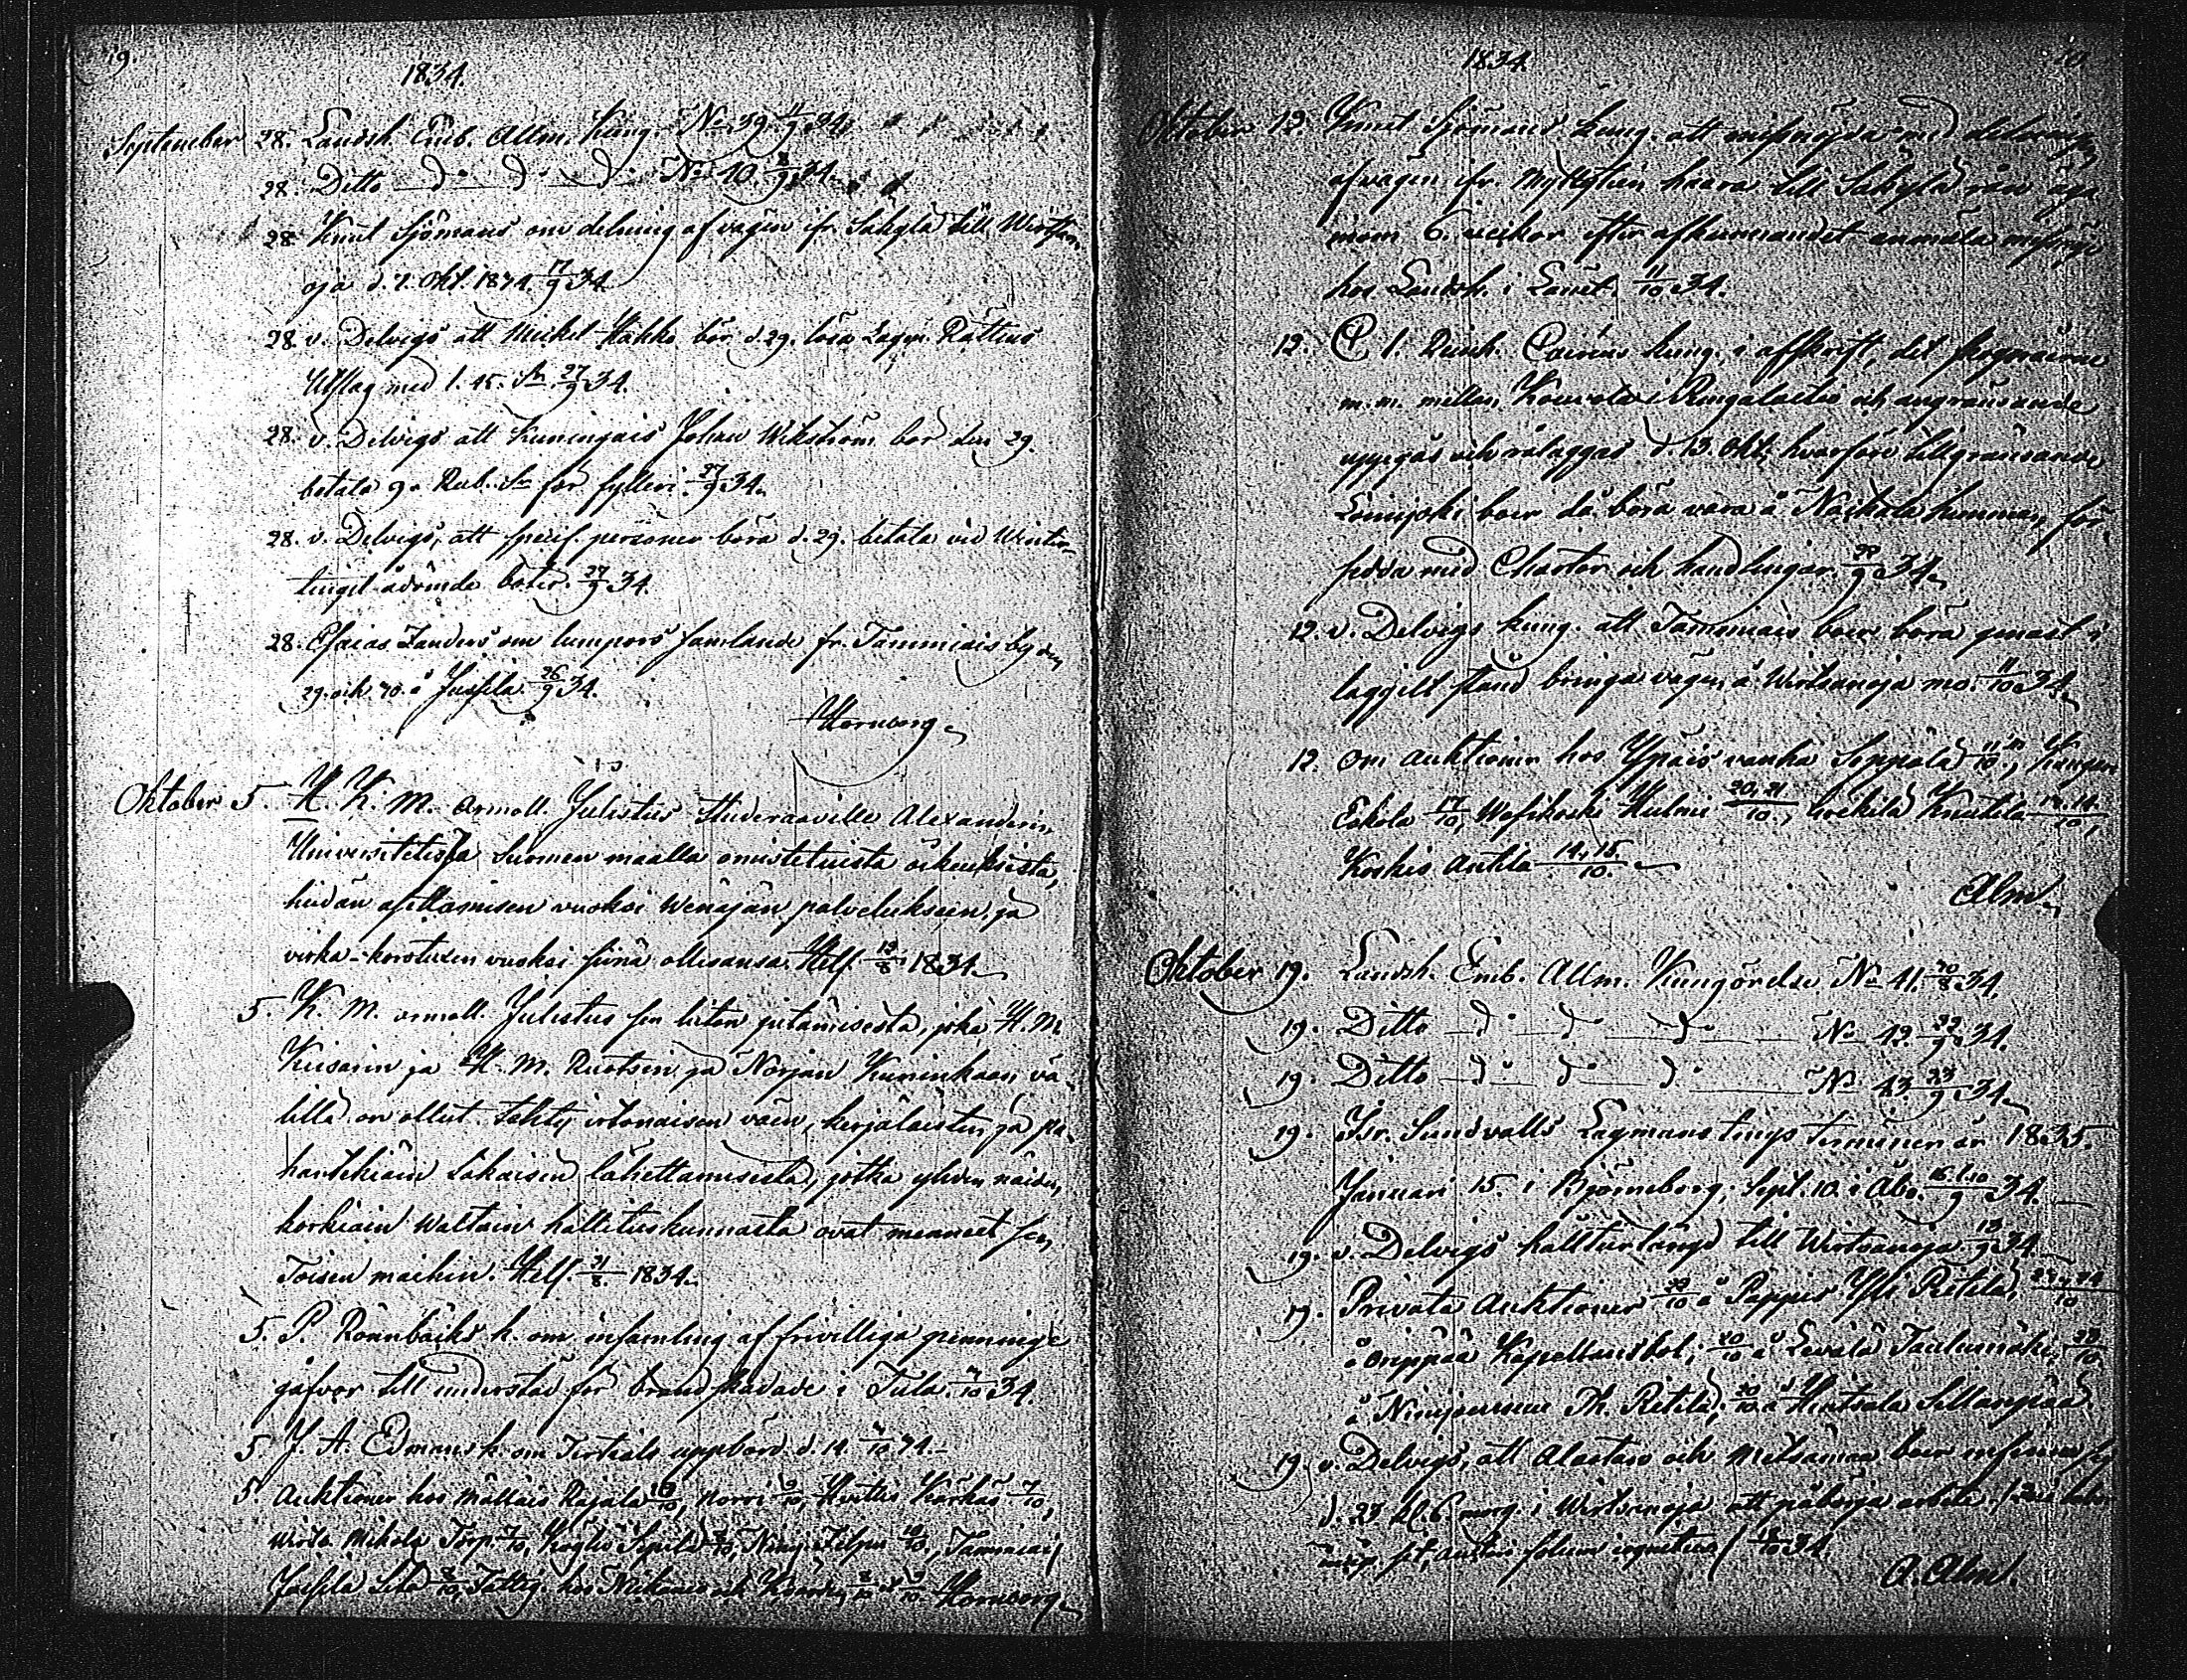 19.
1834.
September 28. Landsh. Emb. Allm. Kung. No 39. 11/9 34.
28. Ditto do do do No 40. 8/9 34.
28. Knut Sjömans om delning af vägen ifr. Säkylä till Wirtsan-
oja d. 7. Okt. 1834. 17/9 34.
28. v. Delvigs att Michel Kökkö bör d. 29. lösa Lagm. Rättens
Utslag med 1. 45. Sr. 27/9 34.
28. v. Delvigs att Kuningais Johan Wikström bör den 29.
betala 9. Rub. Sr. för fylleri. 27/9 34.
28. v. Delvigs, att specif. personer böra d. 29. betala vid Winter-
tinget ådömde böter. 27/9 34.
28. Esaias Zanders om lumpors samlande fr. Tammiais by den
29. och 30. å Jussila 26/9 34.
Hornborg
Oktober 5. H. K. M. Armoll. Julistus Studeraaville Alexanderin
Universitetissa Suomen maalla omistetuista oikeuksista,
heidän astumisen vuoksi Wenäjän palvelukseen, ja
virka-korotuxen vuoksi siinä ollesansa. Helf. 19/8 1834.
5. K. M. armoll. Julistus sen liiton pitämisestä, joka H. M.
Keisarin ja H. M. Ruotsin ja Norjan Kuninkaan vä-
lillä on ollut tehty irtonaisen väen, kerjäläisten ja pa-
hantekiäin takaisin lähettämisestä, jotka yhden näiden
korkiain Waltain hallituskunnasta ovat menneet sen
Toisen maihin. Helf. 21/8 1834.
5. P. Rönnbäcks k. om insamling af frivilliga penninge
gåfvor till understöd för brandskadade i Tula. /10 34.
5. J. A. Edmans k. om Tertials uppbörd d. 14. /10 34.
5. Auktioner hos Mälläis Rajala /10, Norri 9/10, Huttis Kärkäs 7/10,
Wirta Mikola Torp. 7/10, Köyliö Seppälä /10, Filpus 10/10, Tammiais
Jussila 8/10, hos och /10 9/10 Hornborg

1834.
Oktober 12. Knut Sjömans kung. att missnöjda med delningen
af vägen ifr. Myllylän haara till Säkylä rån äga
inom 6. veckor efter afkunnandet anmäla missnöje
hos Landsh. i Länet. 11/10 34.
12. C. 1. kung. i afskrift, det skognäme
m. m. mellan Kouvola i Rungalaitio och angränsande
uppgås och råläggas d. 13. Okt. hvarföre tillgränsande
Loimijoki boer då böra vara å hemman för-
sedda med Chartor och handlingar. /9 34.
12. v. Delvigs kung. att Tammiais boer böra genast i
laggillt stånd bringa vägen å Wirtsanoja mo. 11/10 34.
12. Om Auktioner hos Ypäis vanha Seppälä /10,
Eskola 17/10, 20, 21/10, Knuutila /10,
Koskis Anttila 14, 15/10.
Alm.
Oktober 19. Landsh. Emb. Allm. Kungörelse No 41. /8 34.
19. Ditto do do do No 42. 22/9 34.
19. Ditto do do do No 43. 23/9 34.
19. Isr. Sundvalls Lagmans tings Terminer år 1835.
Januari 15. i Björneborg; Sept. 10. i Åbo. /9 34.
19. v. Delvigs hålltur längd till Wirtsanoja. 13/9 34.
19. Privata Auktioner /10 å Pappis Yli Retilä, /10
å Oripää Kapellansbol; 20/10 å Levälä Taulumäki, /10
å Niinijoensuu Ph. Ritilä, 20/10 å Hintsala Sillanpää
19. v. Delvigs, att Alastaro och Metsämaa boer
d. 23 kl. 6 morg. i Wirtsanoja att påbörja arbete.
/10 34.
A. Alm.